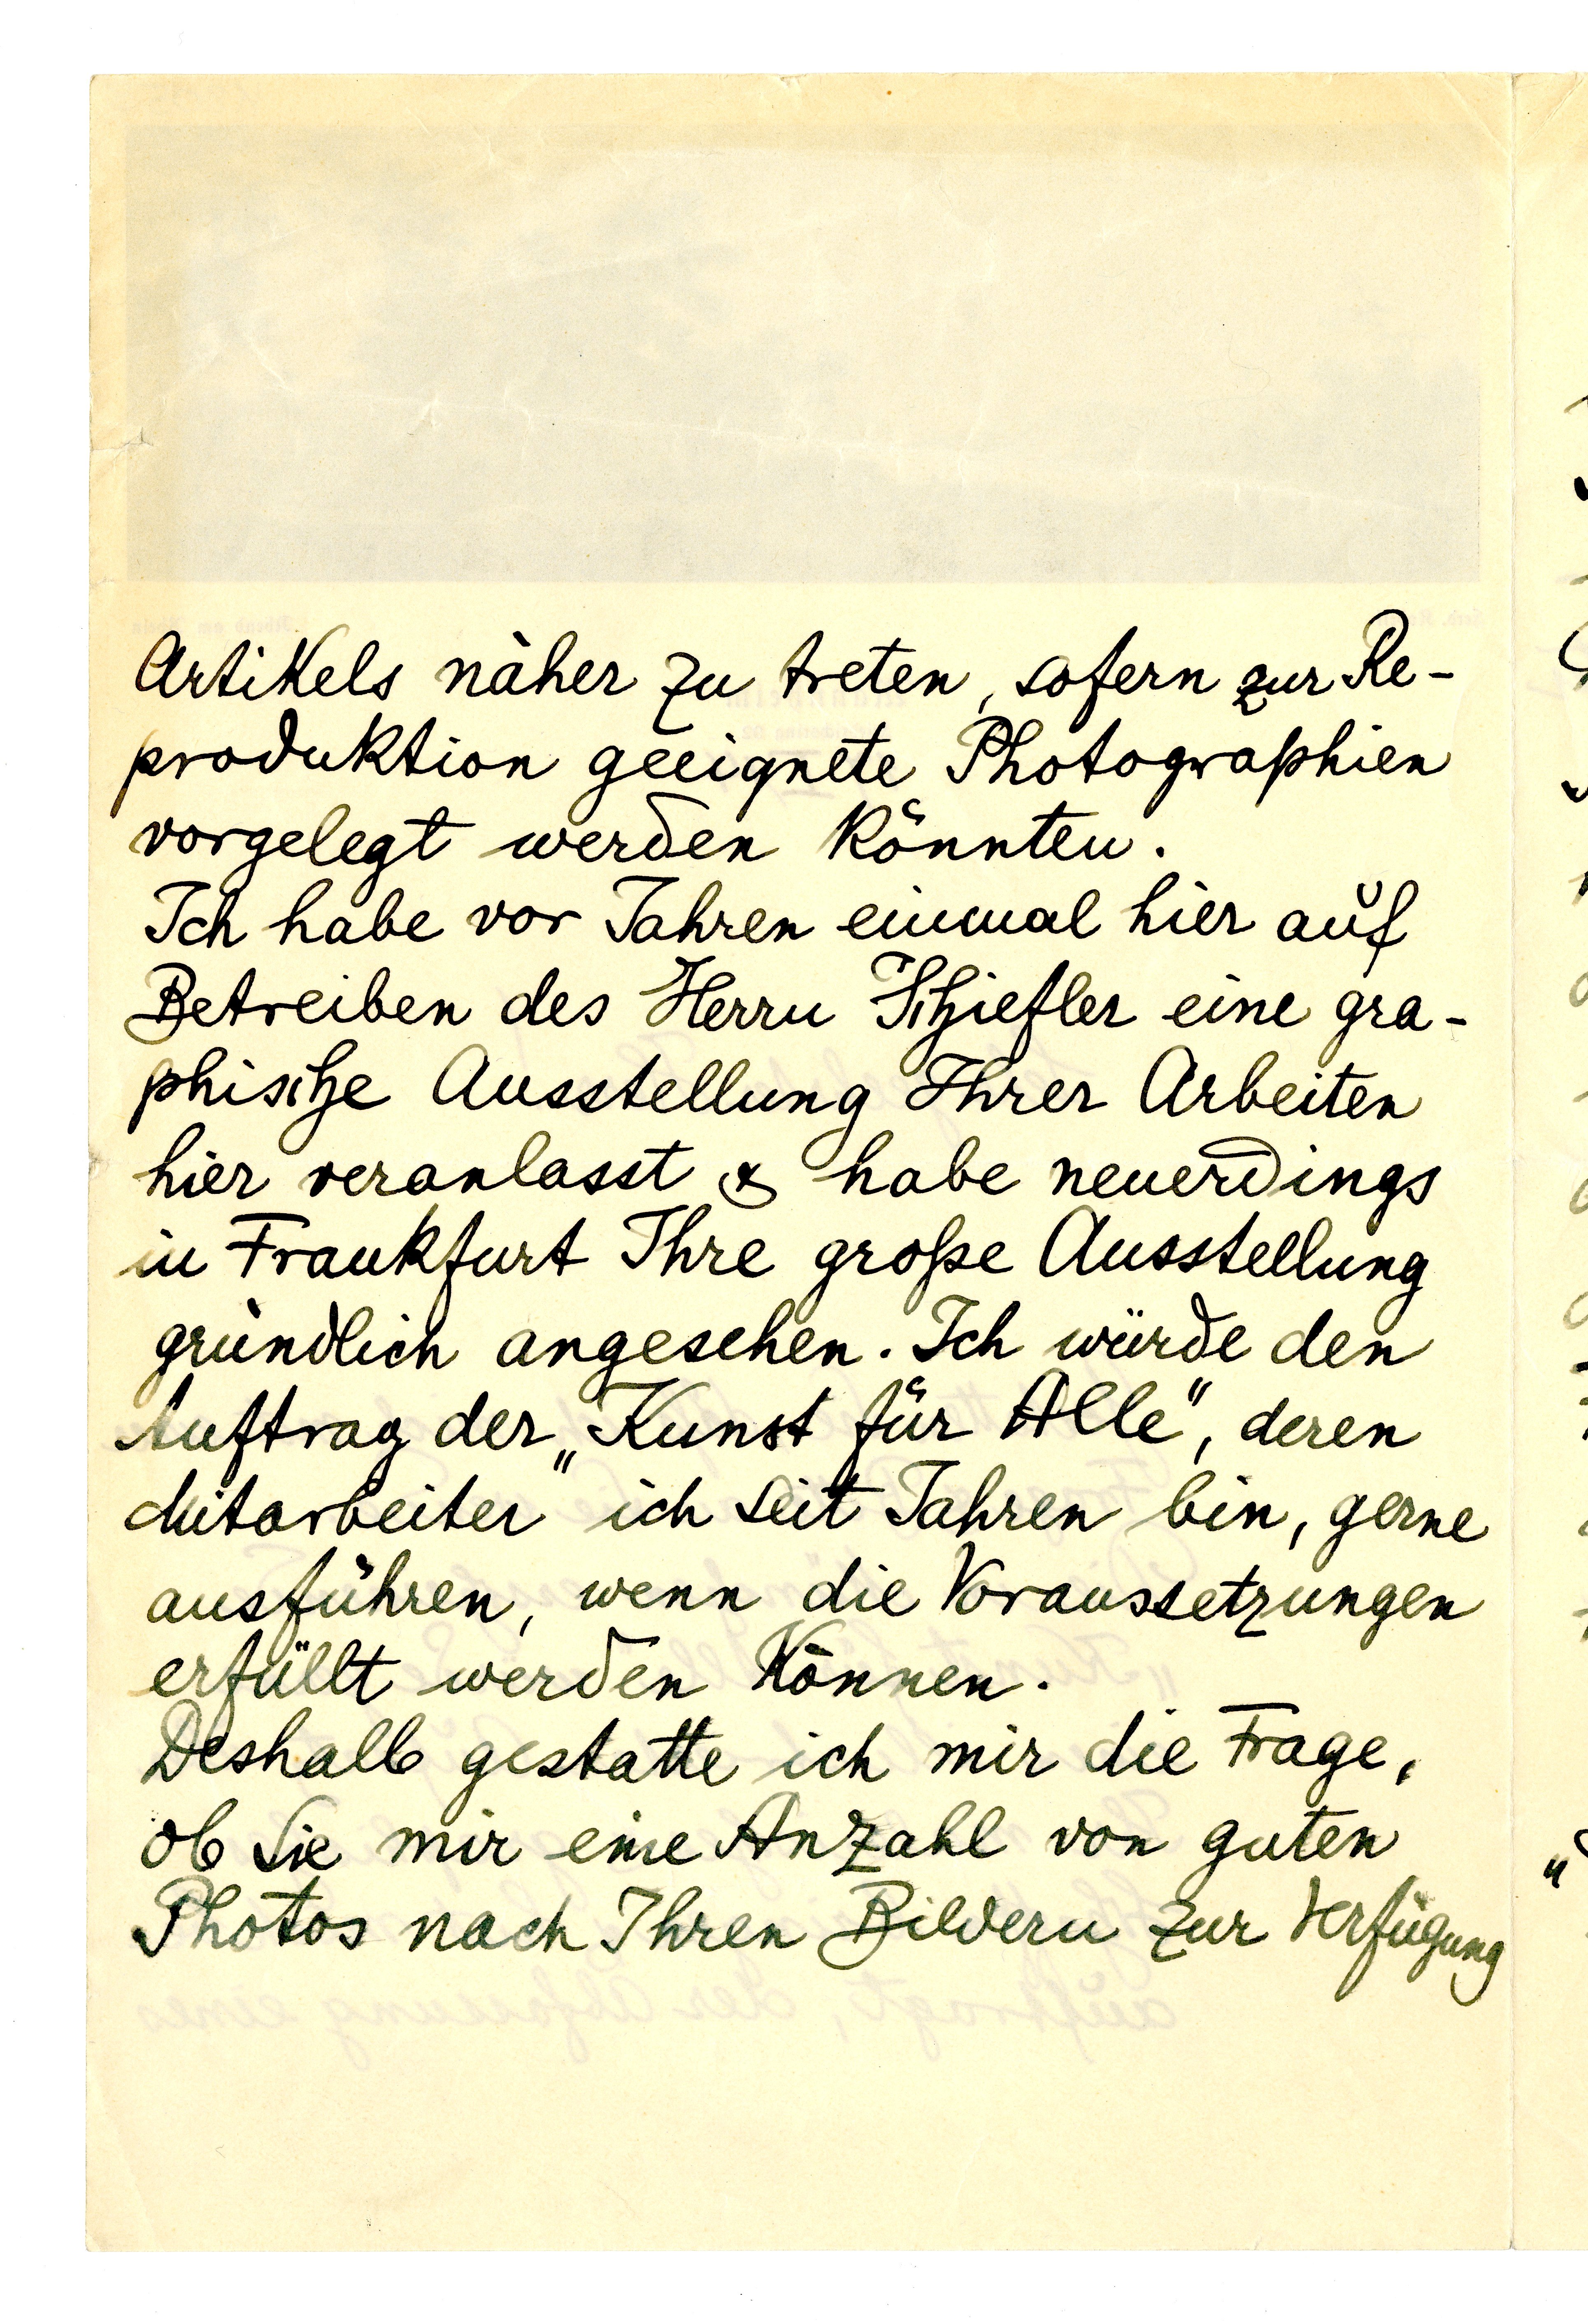 Artikels näher zu treten, sofern zur Re-
produktion geeignete Photographien
vorgelegt werden könnten.
Ich habe vor Jahren einmal hier auf
Betreiben des Herrn Schiefler eine gra-
phische Ausstellung Ihrer Arbeiten
hier veranlasst & habe neuerdings
in Frankfurt Ihre große Ausstellung
gründlich angesehen. Ich würde den
Auftrag der „Kunst für Alle“, deren
Mitarbeiter ich seit Jahren bin, gerne
ausführen, wenn die Voraussetzungen
erfüllt werden können.
Deshalb gestatte ich mir die Frage,
ob Sie mir eine Anzahl von guten
Photos nach Ihren Bildern zur Verfügung